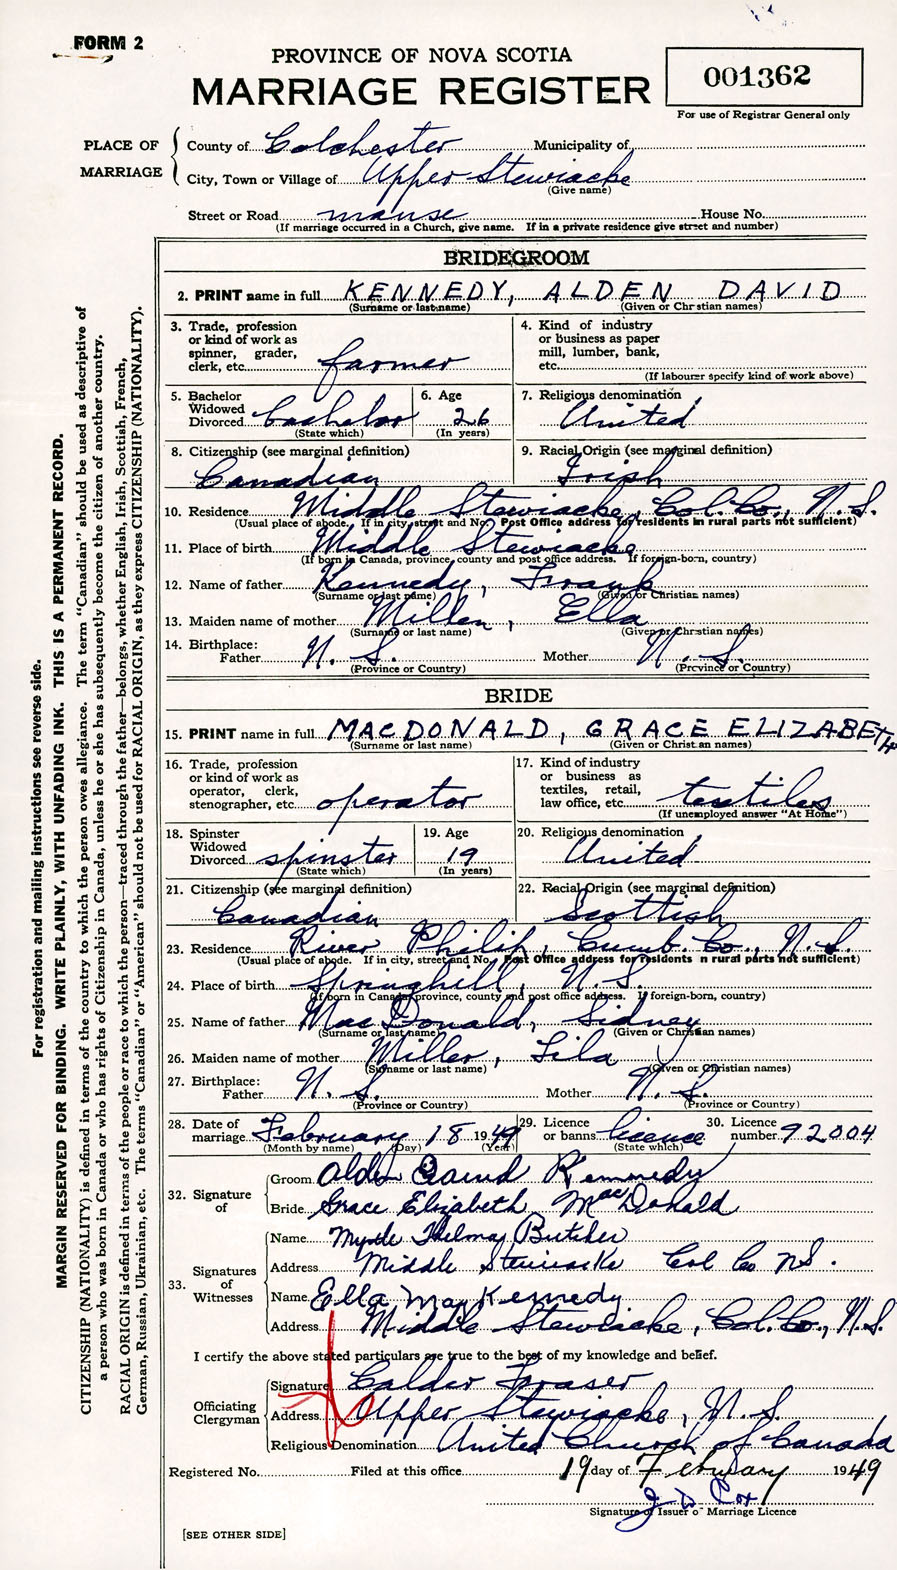 FORM 2
PROVINCE OF NOVA SCOTIA
MARRIAGE REGISTER
001362
For use of Registrar General only
PLACE OF MARRIAGE
County of Colchester Municipality of
City, Town or Village of Upper Stewiacke
(Give name)
Street or Road manse House No.
(If marriage occurred in a Church, give name. If in a private residence give street and number)
BRIDEGROOM
2. PRINT name in full KENNEDY, ALDEN DAVID
(Surname or last name) (Given or Christian names)
3. Trade, profession or kind of work as spinner, grader, clerk, etc. farmer
4. Kind of industry or business as paper mill, lumber, bank, etc.
(If labourer specify kind of work above)
5. Bachelor Widowed Divorced bachelor
(State which)
6. Age 26
(In years)
7. Religious denomination United
8. Citizenship (see marginal definition) Canadian
9. Racial Origin (see marginal definition) Irish
10. Residence Middle Stewiacke, Col. Co., N.S.
(Usual place of abode. If in city, street and No. Post Office address for residents in rural parts not sufficient)
11. Place of birth Middle Stewiacke
(If born in Canada, province, county and post office address. If foreign-born, country)
12. Name of father Kennedy, Frank
(Surname or last name) (Given or Christian names)
13. Maiden name of mother Millen, Ella
(Surname or last name) (Given or Christian names)
14. Birthplace:
Father N.S. Mother N.S.
(Province or Country) (Province or Country)
BRIDE
15. PRINT name in full MACDONALD, GRACE ELIZABETH
(Surname or last name) (Given or Christian names)
16. Trade, profession or kind of work as operator, clerk, stenographer, etc. operator
17. Kind of industry or business as textiles, retail, law office, etc. textiles
(If unemployed answer "At Home")
18. Spinster Widowed Divorced spinster
(State which)
19. Age 19
(In years)
20. Religious denomination United
21. Citizenship (see marginal definition) Canadian
22. Racial Origin (see marginal definition) Scottish
23. Residence River Philip, Cumb. Co., N.S.
(Usual place of abode. If in city, street and No. Post Office address for residents in rural parts not sufficient)
24. Place of birth Springhill, N.S.
(If born in Canada, province, county and post office address. If foreign-born, country)
25. Name of father MacDonald, Sidney
(Surname or last name) (Given or Christian names)
26. Maiden name of mother Miller, Lila
(Surname or last name) (Given or Christian names)
27. Birthplace:
Father N.S. Mother N.S.
(Province or Country) (Province or Country)
28. Date of marriage February 18 1949
(Month by name) (Day) (Year)
29. Licence or banns licence
(State which)
30. Licence number 92004
32. Signature of
Groom Alden David Kennedy
Bride Grace Elizabeth MacDonald
33. Signatures of Witnesses
Name Myrtle Thelma Butcher
Address Middle Stewiacke Col Co NS.
Name Ella May Kennedy
Address Middle Stewiacke, Col. Co., N.S.
I certify the above stated particulars are true to the best of my knowledge and belief.
Officiating Clergyman
Signature Calder Fraser
Address Upper Stewiacke, N.S.
Religious Denomination United Church of Canada
Registered No. Filed at this office 19 day of February 1949
J D Cox
Signature of Issuer of Marriage Licence
[SEE OTHER SIDE]
For registration and mailing instructions see reverse side.
MARGIN RESERVED FOR BINDING. WRITE PLAINLY, WITH UNFADING INK. THIS IS A PERMANENT RECORD.
CITIZENSHIP (NATIONALITY) is defined in terms of the country to which the person owes allegiance. The term "Canadian" should be used as descriptive of
a person who was born in Canada or who has rights of Citizenship in Canada, unless he or she has subsequently become the citizen of another country.
RACIAL ORIGIN is defined in terms of the people or race to which the person—traced through the father—belongs, whether English, Irish, Scottish, French,
German, Russian, Ukrainian, etc. The terms "Canadian" or "American" should not be used for RACIAL ORIGIN, as they express CITIZENSHIP (NATIONALITY).